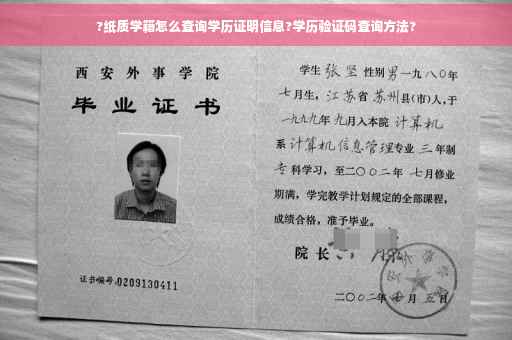 ?纸质学籍怎么查询学历证明信息?学历验证码查询方法?
西安外事学院
毕业证书
证书编号:0209130411
学生张坚性别男一九八〇年
七月生,江苏省苏州县(市)人,于
一九九九年九月入本院计算机
系计算机信息管理专业三年制
专科学习,至二〇〇二年七月修业
期满,学完教学计划规定的全部课程,
成绩合格,准予毕业。
院长
二〇〇二年 月五日